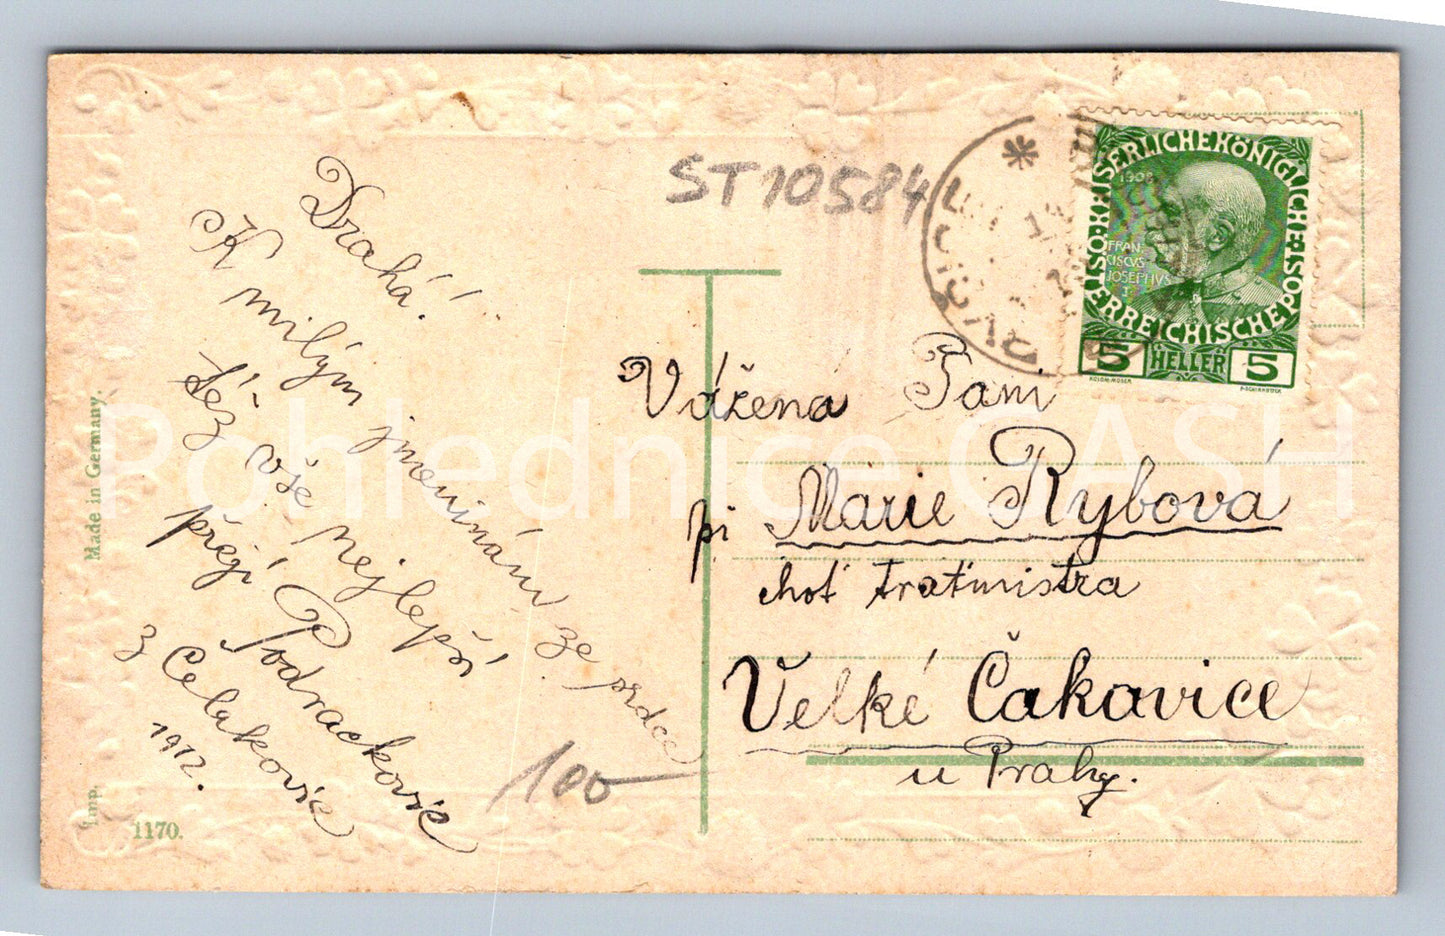 Drahá!
K milým jmeninám ze srdce
též vše nejlepší
přejí Podrackovic
z Celakovic
1912.
ST10584
100
Vážená Paní
pí Marie Rybová
choť traťmistra
Velké Čakovice
u Prahy.
KAISERLICHE KÖNIGLICHE ÖSTERREICHISCHE POST
1908
FRAN
CISCVS
JOSEPHVS
I
5 HELLER 5
KOLOM. MOSER
F. SCHIRNBÖCK
Made in Germany.
Imp.
1170.
Pohlednice CASH